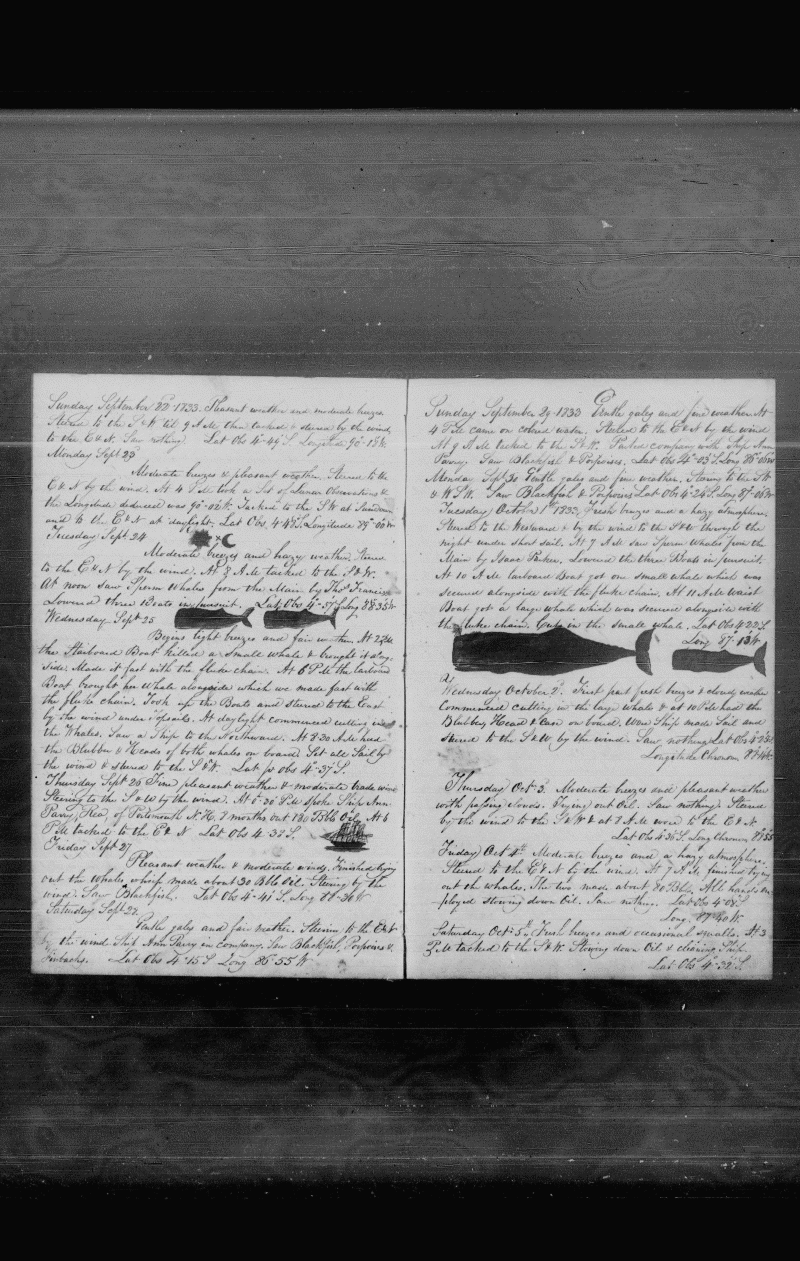 Sunday September 22d 1833. Pleasant weather and moderate breezes
Steered to the S & W til 9 A.M. then tacked & steered by the wind
to the E & N. Saw nothing. Lat Obs 4°-49' S. Longitude 90°-18 W.
Monday Sept 23
Moderate breezes & pleasant weather. Steered to the
E & N by the wind. At 4 P.M. took a Set of Lunar Observations &
the Longitude deduced was 90°-02 W. Tacked to the S W at Sundown
and to the E & N at daylight. Lat Obs. 4°48' S. Longitude 89°-00 W
Tuesday Sept. 24
Moderate breezes and hazy weather. Steered
to the E & N by the wind. At 8 A.M. tacked to the S & W.
At noon saw Sperm Whales from the Main by Thos. Francis
Lowered three Boats in pursuit. Lat Obs 4°-37' S Long 88°35 W
Wednesday Sept 25
Begins light breezes and fair weather. At 2 P.M.
the Starboard Boat killed a small whale & brought it along-
side. Made it fast with the fluke chain. At 6 P.M. the larboard
Boat brought her Whale alongside which we made fast with
the fluke chain. Took up the Boats and steered to the East
by the wind under topsails. At daylight commenced cutting in
the Whales. Saw a Ship to the Northward. At 8.30 A.M. had
the Blubber & Heads of both whales on board. Set all Sail by
the wind & steered to the S & W. Lat pr Obs 4°-37' S.
Thursday Sept 26 Fine pleasant weather & moderate trade wind
Steering to the S & W by the wind. At 5-30 P.M. spoke Ship Ann
Parry, Rea, of Portsmouth N.H. months out Bbls Oil. At 6
P.M. tacked to the E & N Lat Obs 4°-32' S.
Friday Sept 27
Pleasant weather & moderate winds. Finished trying
out the whales, which made about 30 Bbls Oil. Steering by the
wind. Saw Blackfish. Lat Obs 4°-41' S. Long W.
Saturday Sept
Gentle gales and fair weather. Steering to the E & N
by the wind. Ship Ann Parry in company. Saw Blackfish, Porpoises &
Finbacks. Lat Obs 4°-15' S Long. 86°-55' W
Sunday September 29-1833 Gentle gales and fine weather. At
4 P.M. came on colored water. Steered to the E & N by the wind
At 9 A.M. tacked to the S & W. Parted company with Ship Ann
Parry. Saw Blackfish & Porpoises. Lat Obs 4°-03' S Long 86°-00 W
Monday Sept 30 Gentle gales and fine weather. Steering to the S W
& W S W. Saw Blackfish & Porpoises Lat Obs 4°-24' S. Long 87°-06' W
Tuesday October 1st 1833. Fresh breezes and a hazy atmosphere.
Steered to the Westward & by the wind to the S & W through the
night under short sail. At 7 A.M. saw Sperm Whales from the
Main by Isaac Parker. Lowered the three Boats in pursuit.
At 10 A.M. larboard Boat got one small whale which was
secured alongside with the fluke chain. At 11 A.M. Waist
Boat got a large whale which was secured alongside with
the fluke chain. Cut in the small whale. Lat Obs 4 22 S
Long 87°-13 W
Wednesday October 2d. First part fresh breezes & cloudy weather
Commenced cutting in the large whale & at 10 P.M. had the
Blubber, Head & Case on board. Wore Ship made Sail and
steered to the S & W by the wind. Saw nothing Lat Obs 4°
Longitude Chronom
Thursday Oct 3. Moderate breezes and pleasant weather
with passing clouds. Trying out Oil. Saw nothing. Steered
by the wind to the S & W & at 7 A.M. wore to the E & N
Lat Obs 4°36' S. Long Chronom 88°55
Friday Oct 4th. Moderate breezes and a hazy atmosphere.
Steered to the E & N by the wind. At 7 A.M. finished trying
out the whales. The two made about 80 Bbls. All hands em-
ployed stowing down Oil. Saw nothing. Lat Obs 4°-08' S
Long. 87°40 W.
Saturday Oct 5th. Fresh breezes and occasional squalls. At 3
P.M. tacked to the S & W. Stowing down Oil & cleaning Ship.
Lat Obs 4°-32' S.